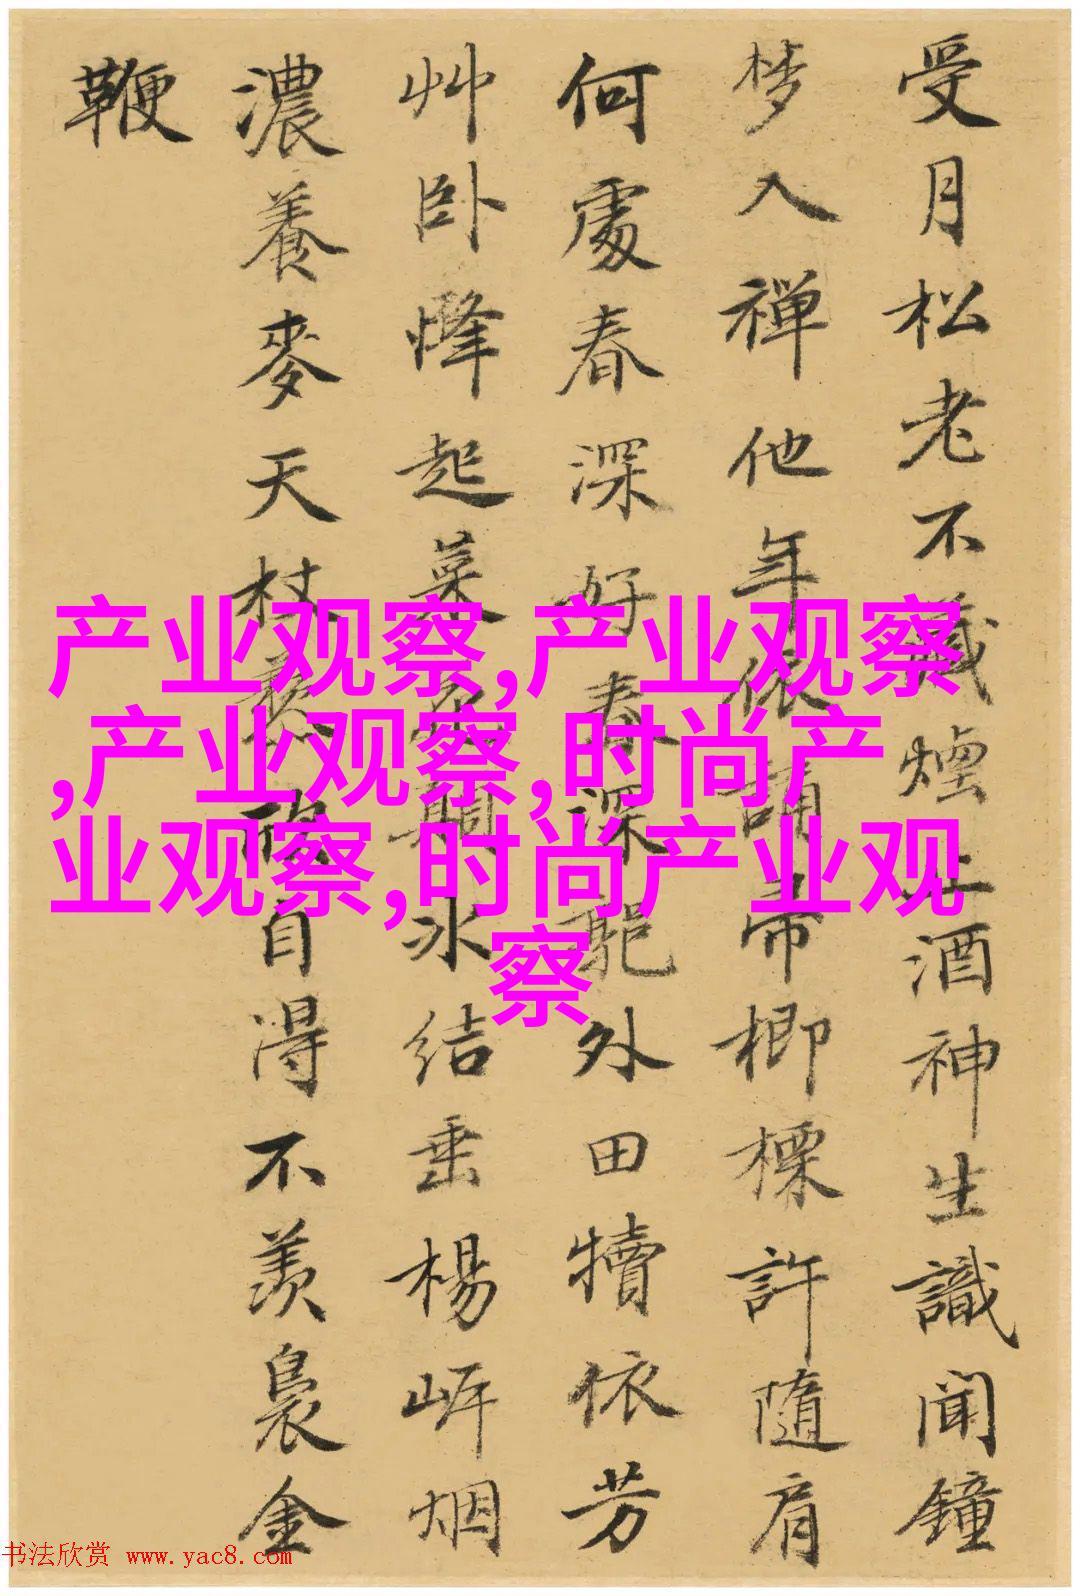 受月松老不煙酒神生識聞鐘
梦入禅他年依帚楖許隨肩
何處春深好春深外田犢依芳
艸卧起菜水結垂楊岍烟
濃養麥天杖自得不羨裊金
鞭
产业观察,产业观察
,产业观察,时尚产
业观察,时尚产业观
察
书法欣赏 www.yac8.com